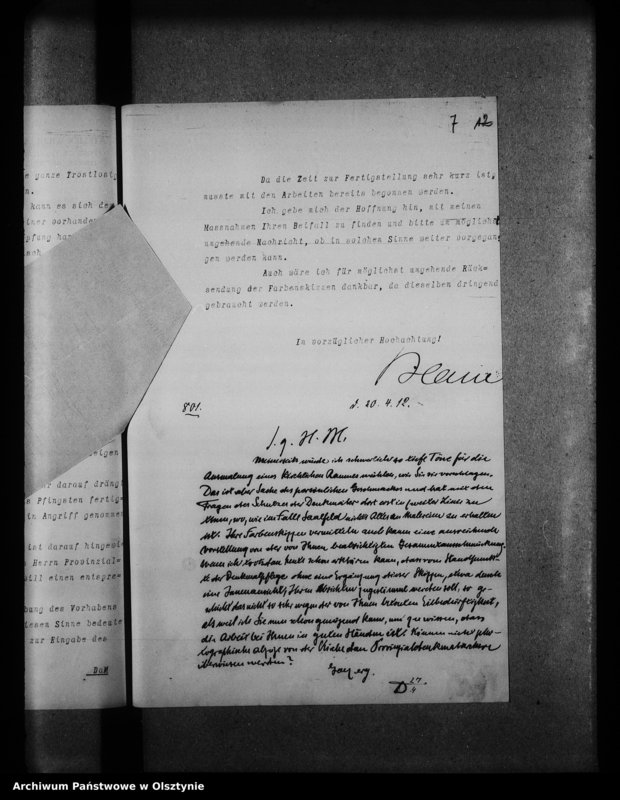 e ganze Trostlosig
n.
kann es sich dem
iner vorhanden
pfung ha
ach
eigen
hr darauf dräng
s Pfingsten fertig=
in Angriff genommen
int darauf hingewie
n Herrn Provinzial=
will einen entspre=
bung des Vorhabens
iesen Sinne bedeute
zur Eingabe des
DaM
7 12
Da die Zeit zur Fertigstellung sehr kurz ist,
musste mit den Arbeiten bereits begonnen werden.
Ich gebe mich der Hoffnung hin, mit meinen
Massnahmen Ihren Beifall zu finden und bitte um möglichst
umgehende Nachricht, ob in solchem Sinne weiter vorgegan
gen werden kann.
Auch wäre ich für möglichst umgehende Rück=
sendung der Farbenskizzen dankbar, da dieselben dringend
gebraucht werden.
In vorzüglicher Hochachtung!
801. d. 20.4.12.
S. g. H. M.
Meinerseits würde ich schwerlich so tiefe Töne für die
Ausmalung eines kirchlichen Raumes wählen, wie Sie sie vorschlagen.
Das ist aber Sache des persönlichen Geschmackes und hat mit den
Fragen des Schutzes der Denkmäler dort erst in zweiter Linie zu
tun, wo, wie im Falle Saalfeld nichts Altes an Malereien zu erhalten
ist. Ihre Farbenskizzen vermitteln auch kaum eine ausreichende
Vorstellung von der von Ihnen beabsichtigten Gesamtausschmückung.
Wenn ich trotzdem heute schon erklären kann, dass vom Standpunkt
der Denkmalpflege ohne eine Ergänzung dieser Skizzen, etwa durch
eine Innenansicht, Ihren Absichten zugestimmt werden soll, so ge-
schieht das nicht so sehr wegen der von Ihnen betonten Eilbedürftigkeit,
als weil ich Sie nun schon genügend kenne, um zu wissen, dass
die Arbeit bei Ihnen in guten Händen ist. Können nicht pho-
tographische Abzüge von der Kirche dem Provinzialdenkmalarchive
überwiesen werden?
D 27/4
Archiwum Państwowe w Olsztynie